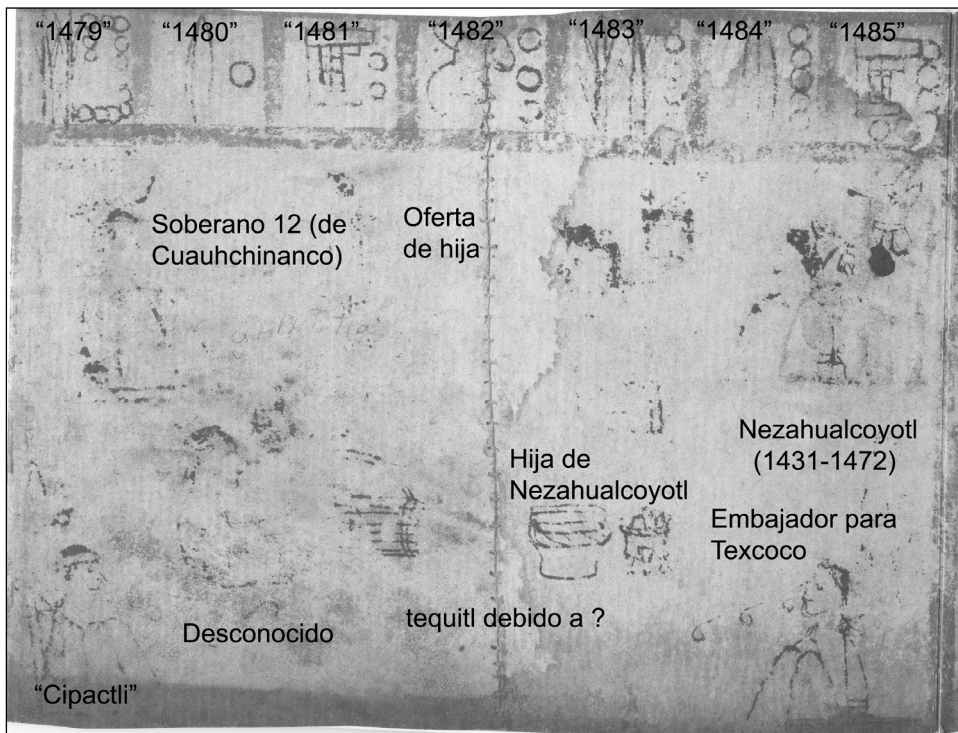 “1479” “1480” “1481” “1482” “1483” “1484” “1485”
Soberano 12 (de
Cuauhchinanco)
Oferta
de hija
Nezahualcoyotl
(1431-1472)
Hija de
Nezahualcoyotl
Embajador para
Texcoco
tequitl debido a ?
Desconocido
“Cipactli”